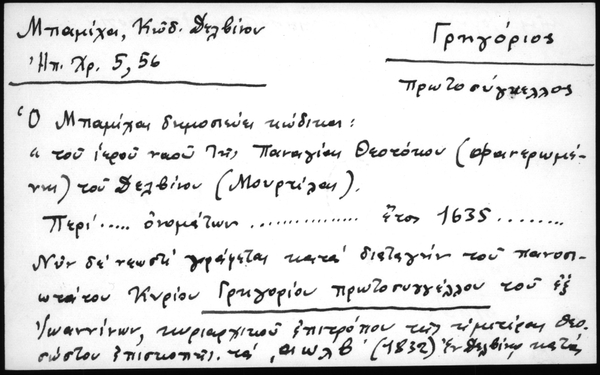 Μπαμίχα, Κώδ. Δελβίνου
Ἠπ. Χρ. 5, 56
Γρηγόριος
πρωτοσύγκελλος
Ὁ Μπαμίχας δημοσιεύει κώδικα:
"τοῦ ἱεροῦ ναοῦ τῆς Παναγίας Θεοτόκου (Φανερωμέ-
νης) τοῦ Δελβίνου (Μουρτίλας).
Περί ..... ὀνομάτων .............. ἔτος 1635 ........
Νῦν δέ νεωστί γράφεται κατά διαταγήν τοῦ πανοσι-
ωτάτου Κυρίου Γρηγορίου πρωτοσυγγέλλου τοῦ ἐξ
Ἰωαννίνων, κυριαρχικοῦ ἐπιτρόπου τῆς ἡμετέρας θεο-
σώστου ἐπισκοπῆς. τά ͵αωλβ΄ (1832) Ἐν Δελβίνῳ κατά